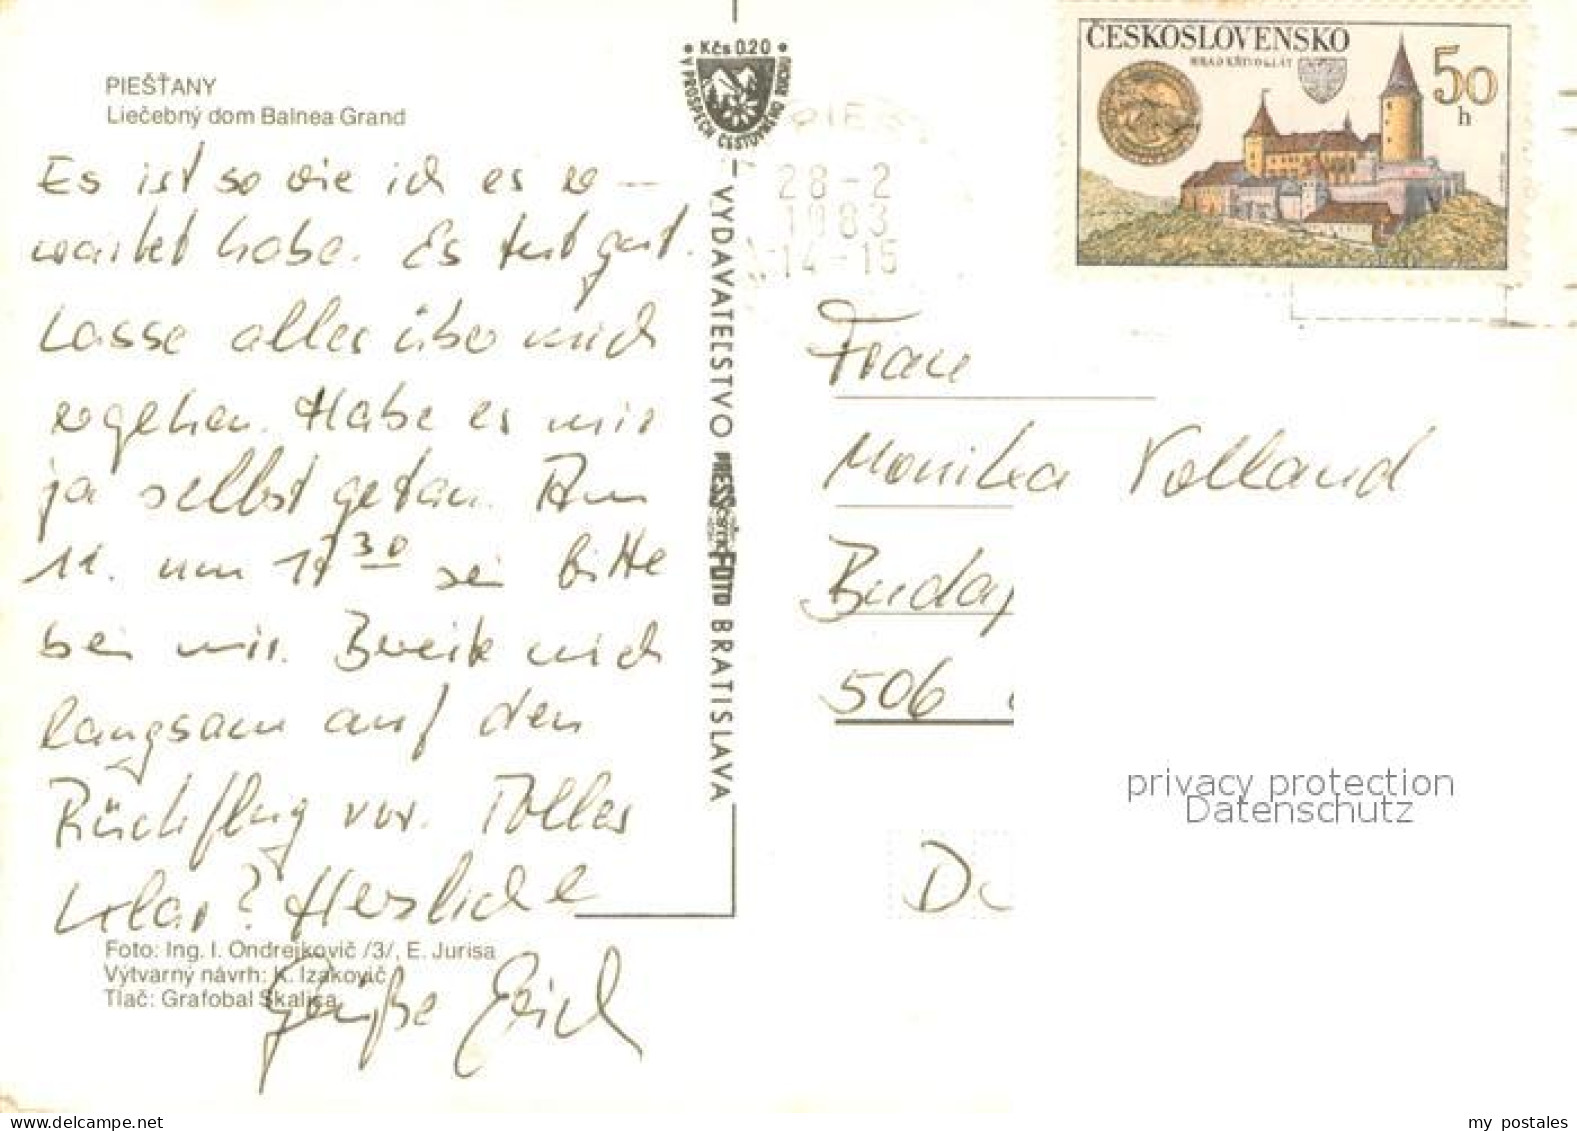 PIEŠŤANY
Liečebný dom Balnea Grand
Es ist so wie ich es er-
wartet habe. Es tut gut.
Lasse alles über mich
ergehen. Habe es mir
ja selbst getan. Am
11. um 17 30 sei bitte
bei mir. Bereite mich
langsam auf den
Rückflug vor. Alles
klar? Herzliche
Grüße Erich
Foto: Ing. I. Ondrejkovič /3/, E. Jurisa
Výtvarný návrh: K. Izakovič
Tlač: Grafobal Skalica
• Kčs 0.20 •
V PROSPECH CESTOVNÉHO RUCHU
VYDAVATEĽSTVO PRESSFOTO BRATISLAVA
28-2
1983
14-15
ČESKOSLOVENSKO
HRAD KŘIVOKLÁT
50
h
Frau
Monika Volland
Budap
506
D
privacy protection
Datenschutz
my postales